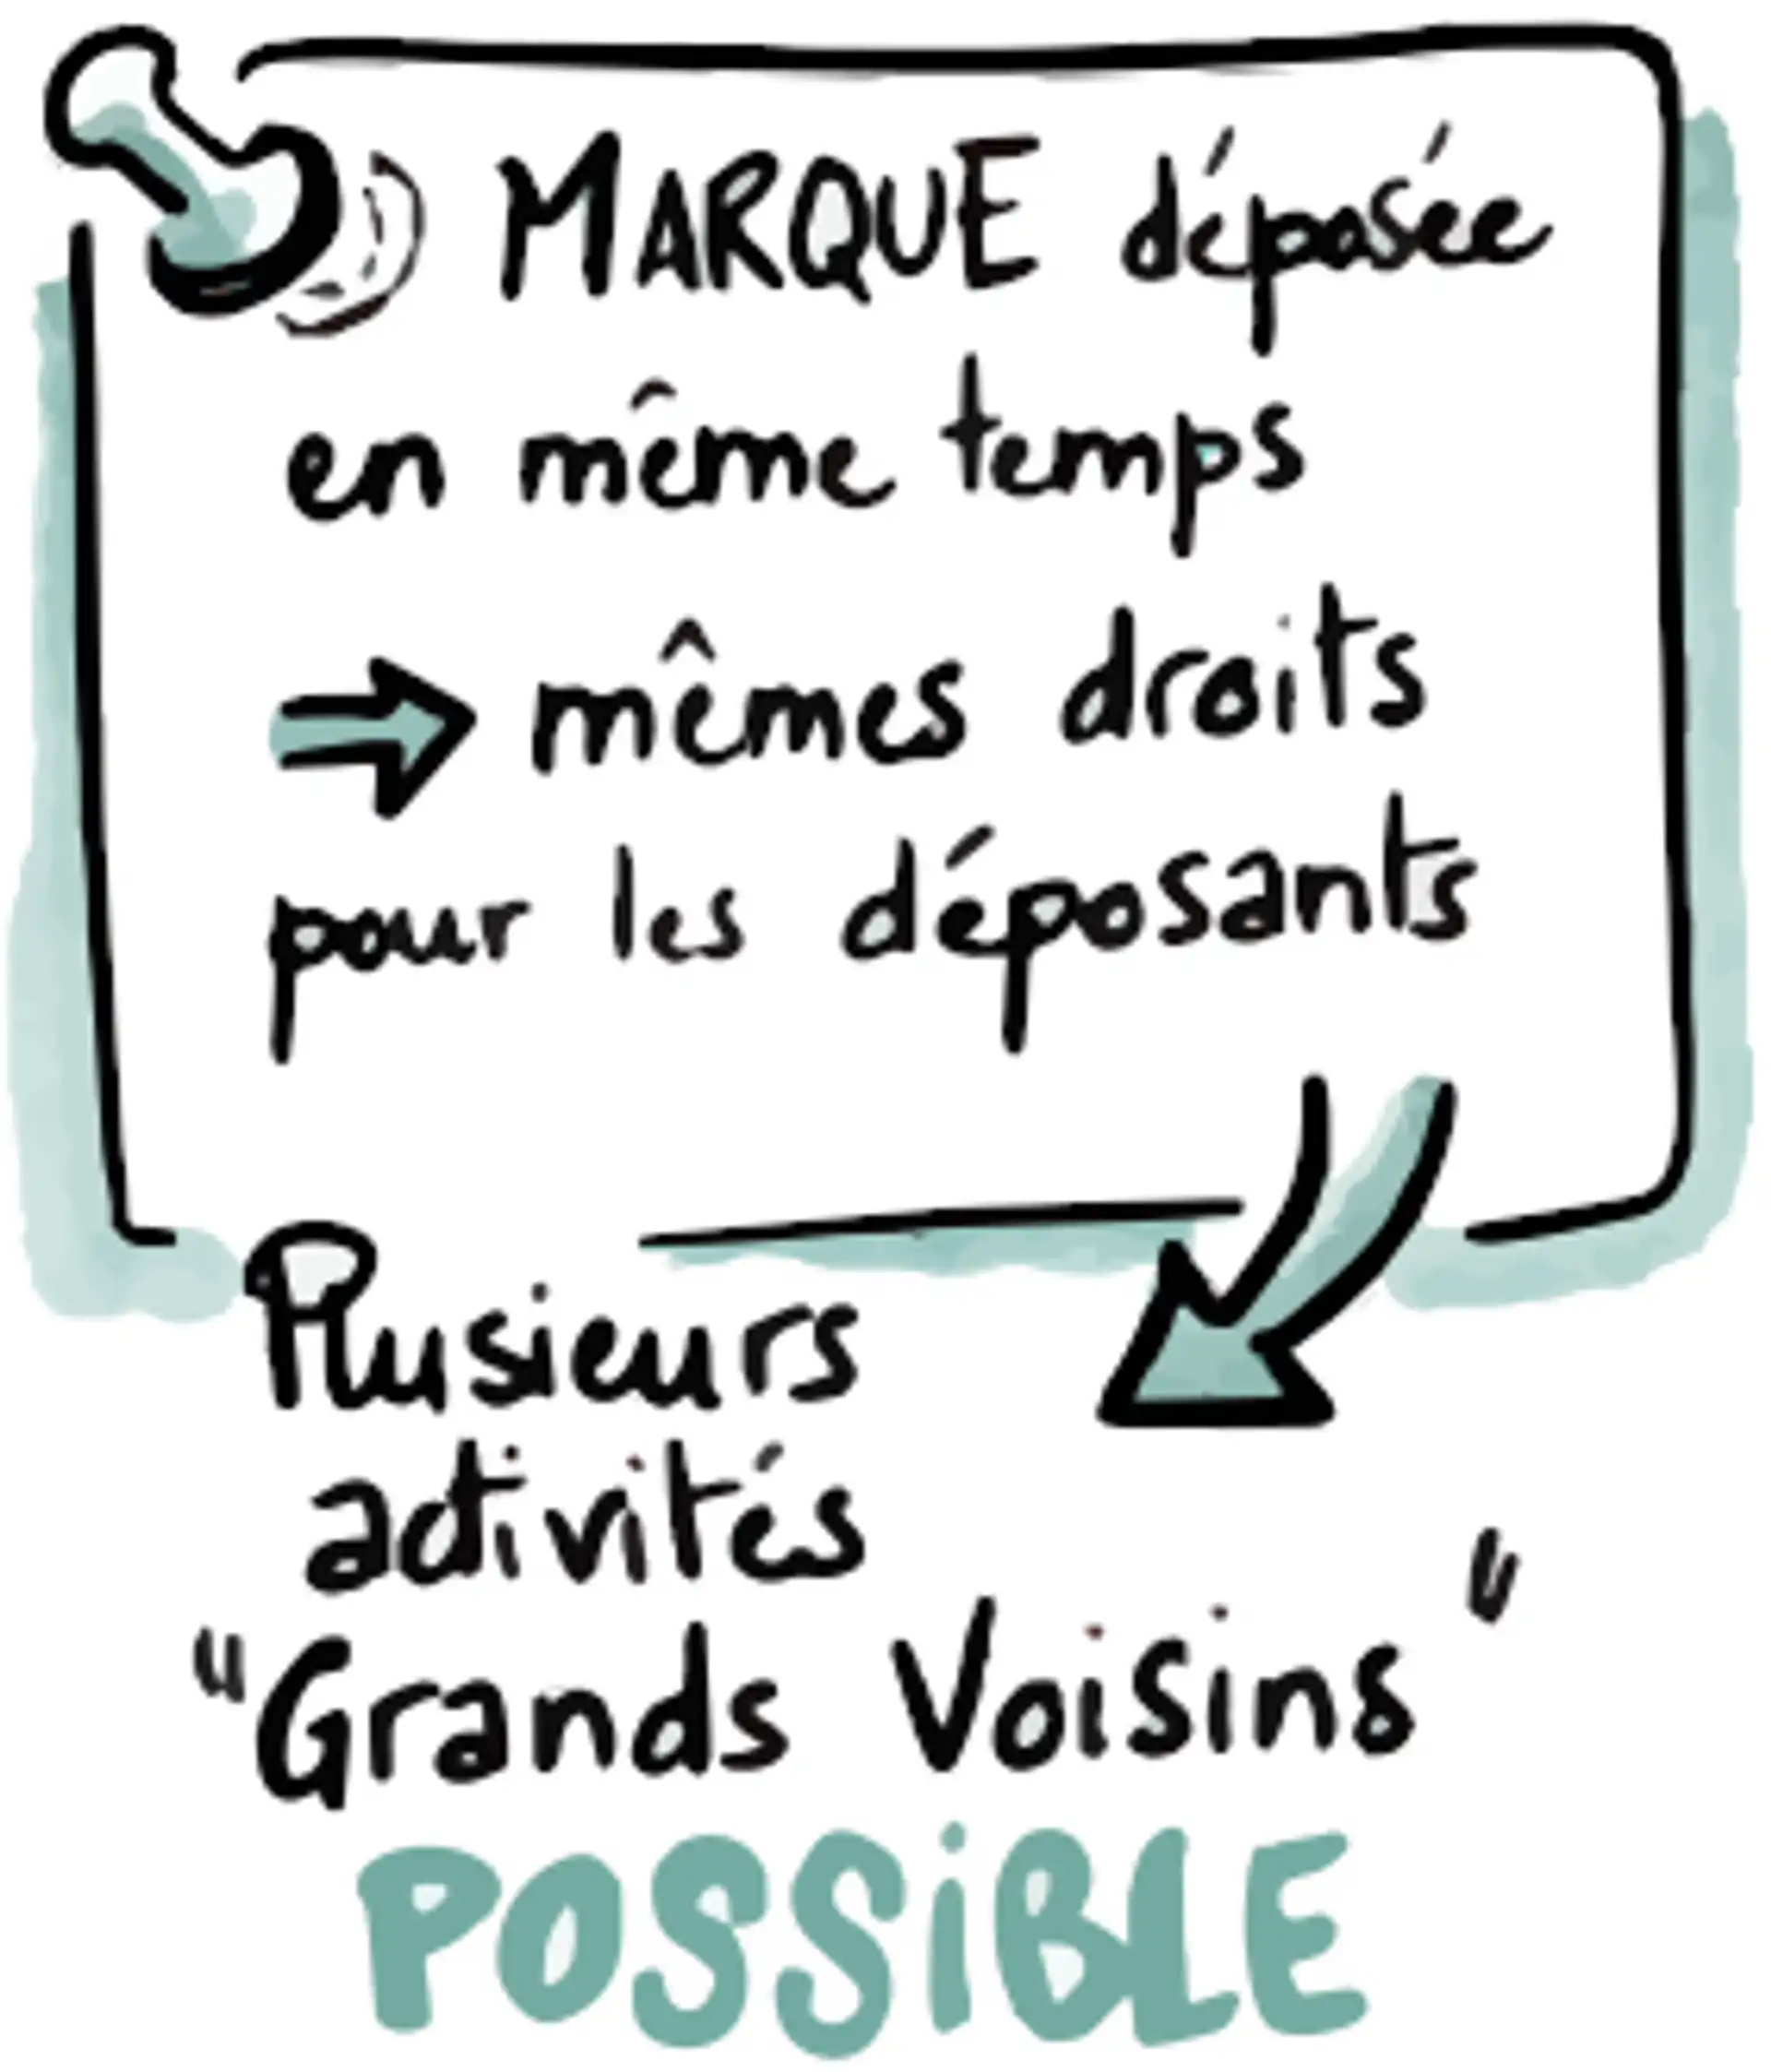 MARQUE déposée
en même temps
⇒ mêmes droits
pour les déposants
Plusieurs
activités
"Grands Voisins"
POSSiBLE